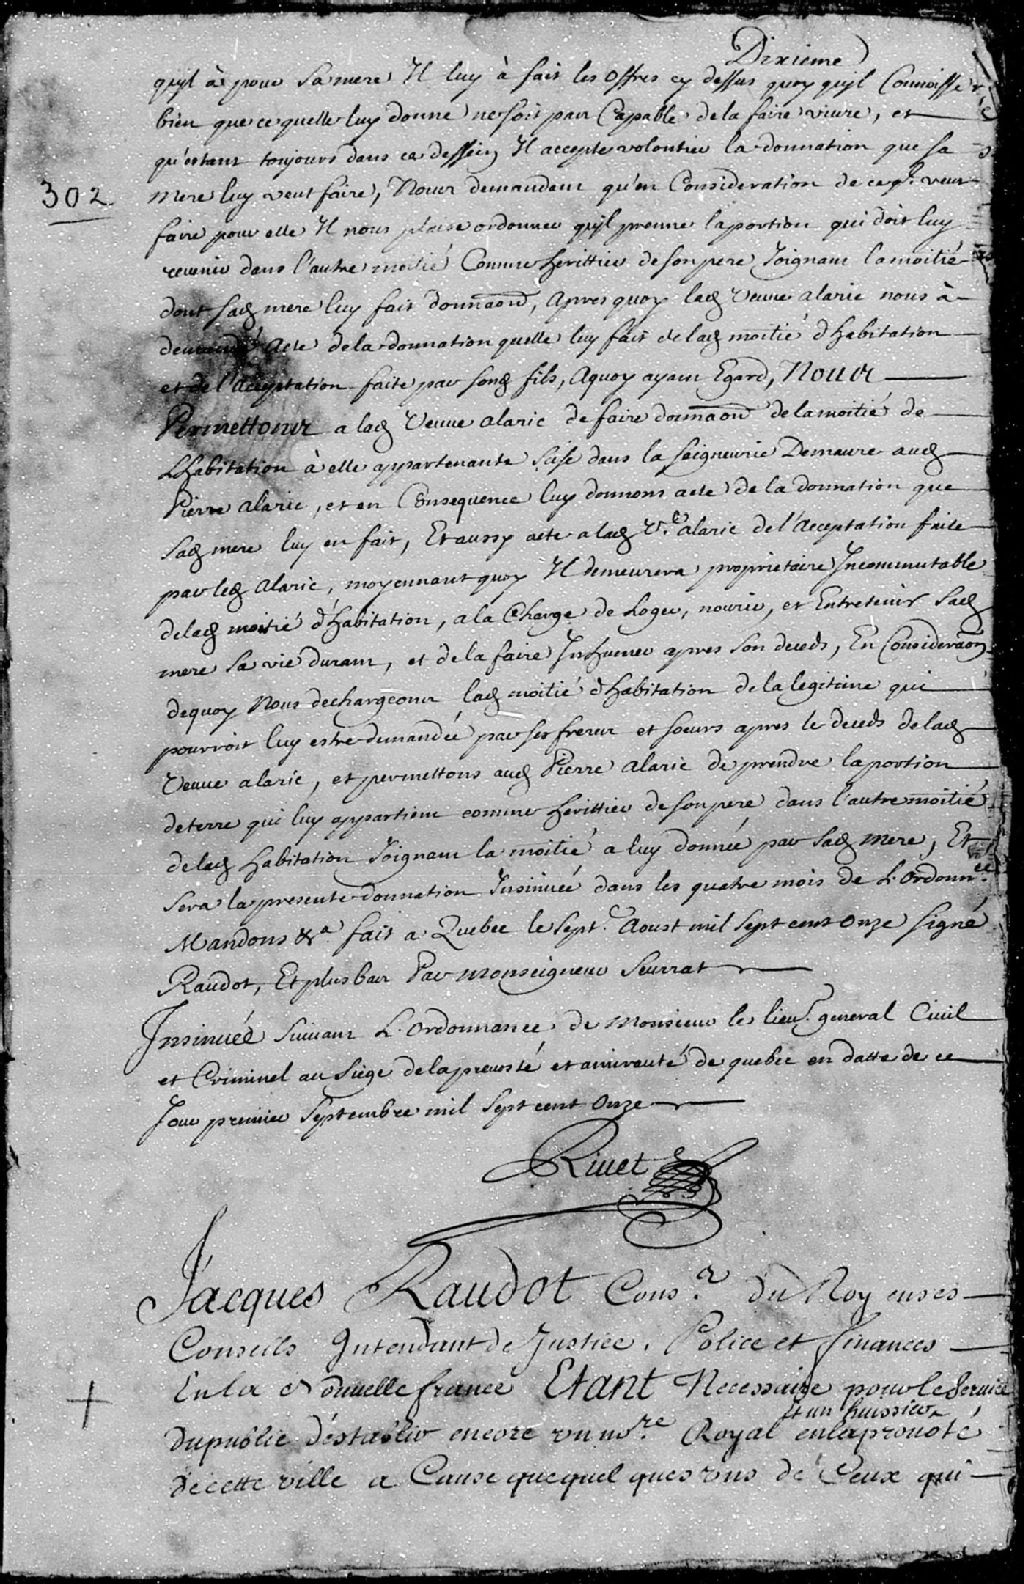 Dixieme
qu'jl à pour Sa mere Il luy à fait les offres cy dessus quoy qu'jl Connoisse
bien que ce quelle luy donne ne soit pas Capable de la faire viure, et
qu'estant toujours dans ce dessein, Il accepte volontier la donnation que sa
302
mere luy veut faire, Nous demandant qu'en Consideration de ce qjl veut
faire pour elle Il nous plaise ordonner qujl prenne la portion qui doit luy
reuenir dans l'autre moitié Comme herittier de son pere Joignant la moitié
dont sad mere luy fait donnaon, apres quoy lad Veuue alarie nous à
demandé acte de la donnation quelle luy fait de lad moitié d'habitation
et de l'acceptation faite par sond fils, Aquoy ayant Egard, Nous
Permettons a lad Veuue alarie de faire donnaon de la moitié de
L'habitation à elle appartenante size dans la seigneurie Demaure aud
Pierre alarie, et en Consequence luy donnons acte de la donnation que
sad mere luy en fait, Et aussy acte a lad Ve. alarie de l'acceptation faite
par led Alarie, moyennant quoy Il demeurera proprietaire Incommutable
de lad moitié d'habitation, a la Charge de Loger, nourir, et Entretenir sad
mere sa vie durant, et de la faire Inhumer apres son deceds, En Consideraon
dequoy Nous dechargeons lad moitié d'habitation de la legitime qui
pourroit luy estre demandée par ses freres et soeurs apres le deceds de lad
Veuue alarie, et permettons aud Pierre alarie de prendre la portion
de terre qui luy appartient comme herittier de son pere dans l'autre moitié
de lad habitation Joignant la moitié a luy donnée par sad mere, Et
sera la presente donnation Insinuée dans les quatre mois de L'Ordonnce.
Mandons &a. fait a Quebec le sept. Aoust mil sept cent onze signé
Raudot, Et plus bas Par monseigneur Seurrat
Insinuée Suiuant L'Ordonnance de Monsieur le lieut. general Ciuil
et Criminel au siege de la preuosté et amirauté de quebec en datte de ce
Jour premier Septembre mil sept cent onze
Riuet
Jacques Raudot Consr. du Roy en ses
Conseils Intendant de Justice, Police et finances
En la Nouuelle france Etant Necessaire pour le Seruice
et un huissier
Du public d'establir encore un nore. Royal en la prouoté
de cette ville a Cause que quel ques uns de Ceux qui